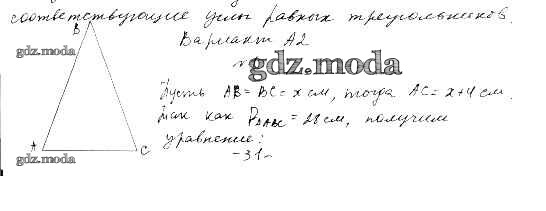 соответствующие углы равных треугольников.
B
Вариант А2
gdz.moda
№
gdz.moda
Пусть AB = BC = x см, тогда AC = x+4 см.
Так как P△ABC = 28 см, получим
A
C
уравнение:
gdz.moda
-31-